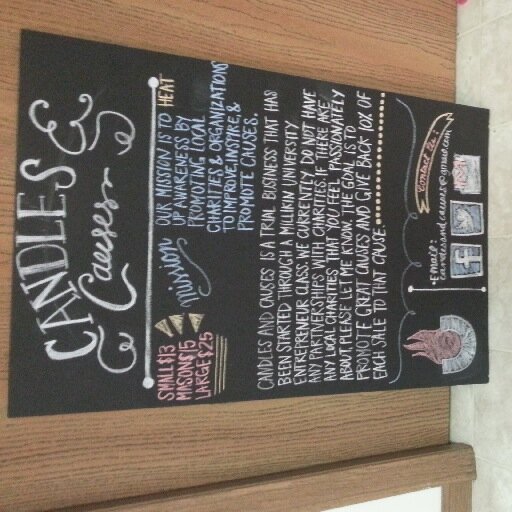 CANDLES &
Causes
SMALL $13
MASON $15
LARGE $25
mission
OUR MISSION IS TO HEAT
UP AWARENESS BY
PROMOTING LOCAL
CHARITIES & ORGANIZATIONS
TO IMPROVE, INSPIRE, &
PROMOTE CAUSES.
CANDLES AND CAUSES IS A TRIAL BUSINESS THAT HAS
BEEN STARTED THROUGH A MILLIKIN UNIVERSITY
ENTREPRENEUR CLASS. WE CURRENTLY DO NOT HAVE
ANY PARTNERSHIPS WITH CHARITIES. IF THERE ARE
ANY LOCAL CHARITIES THAT YOU FEEL PASSIONATELY
ABOUT PLEASE LET ME KNOW. THE GOAL IS TO
PROMOTE GREAT CAUSES AND GIVE BACK 10% OF
EACH SALE TO THAT CAUSE.
Contact Us:
• Email:
candlesandcauses@gmail.com
f